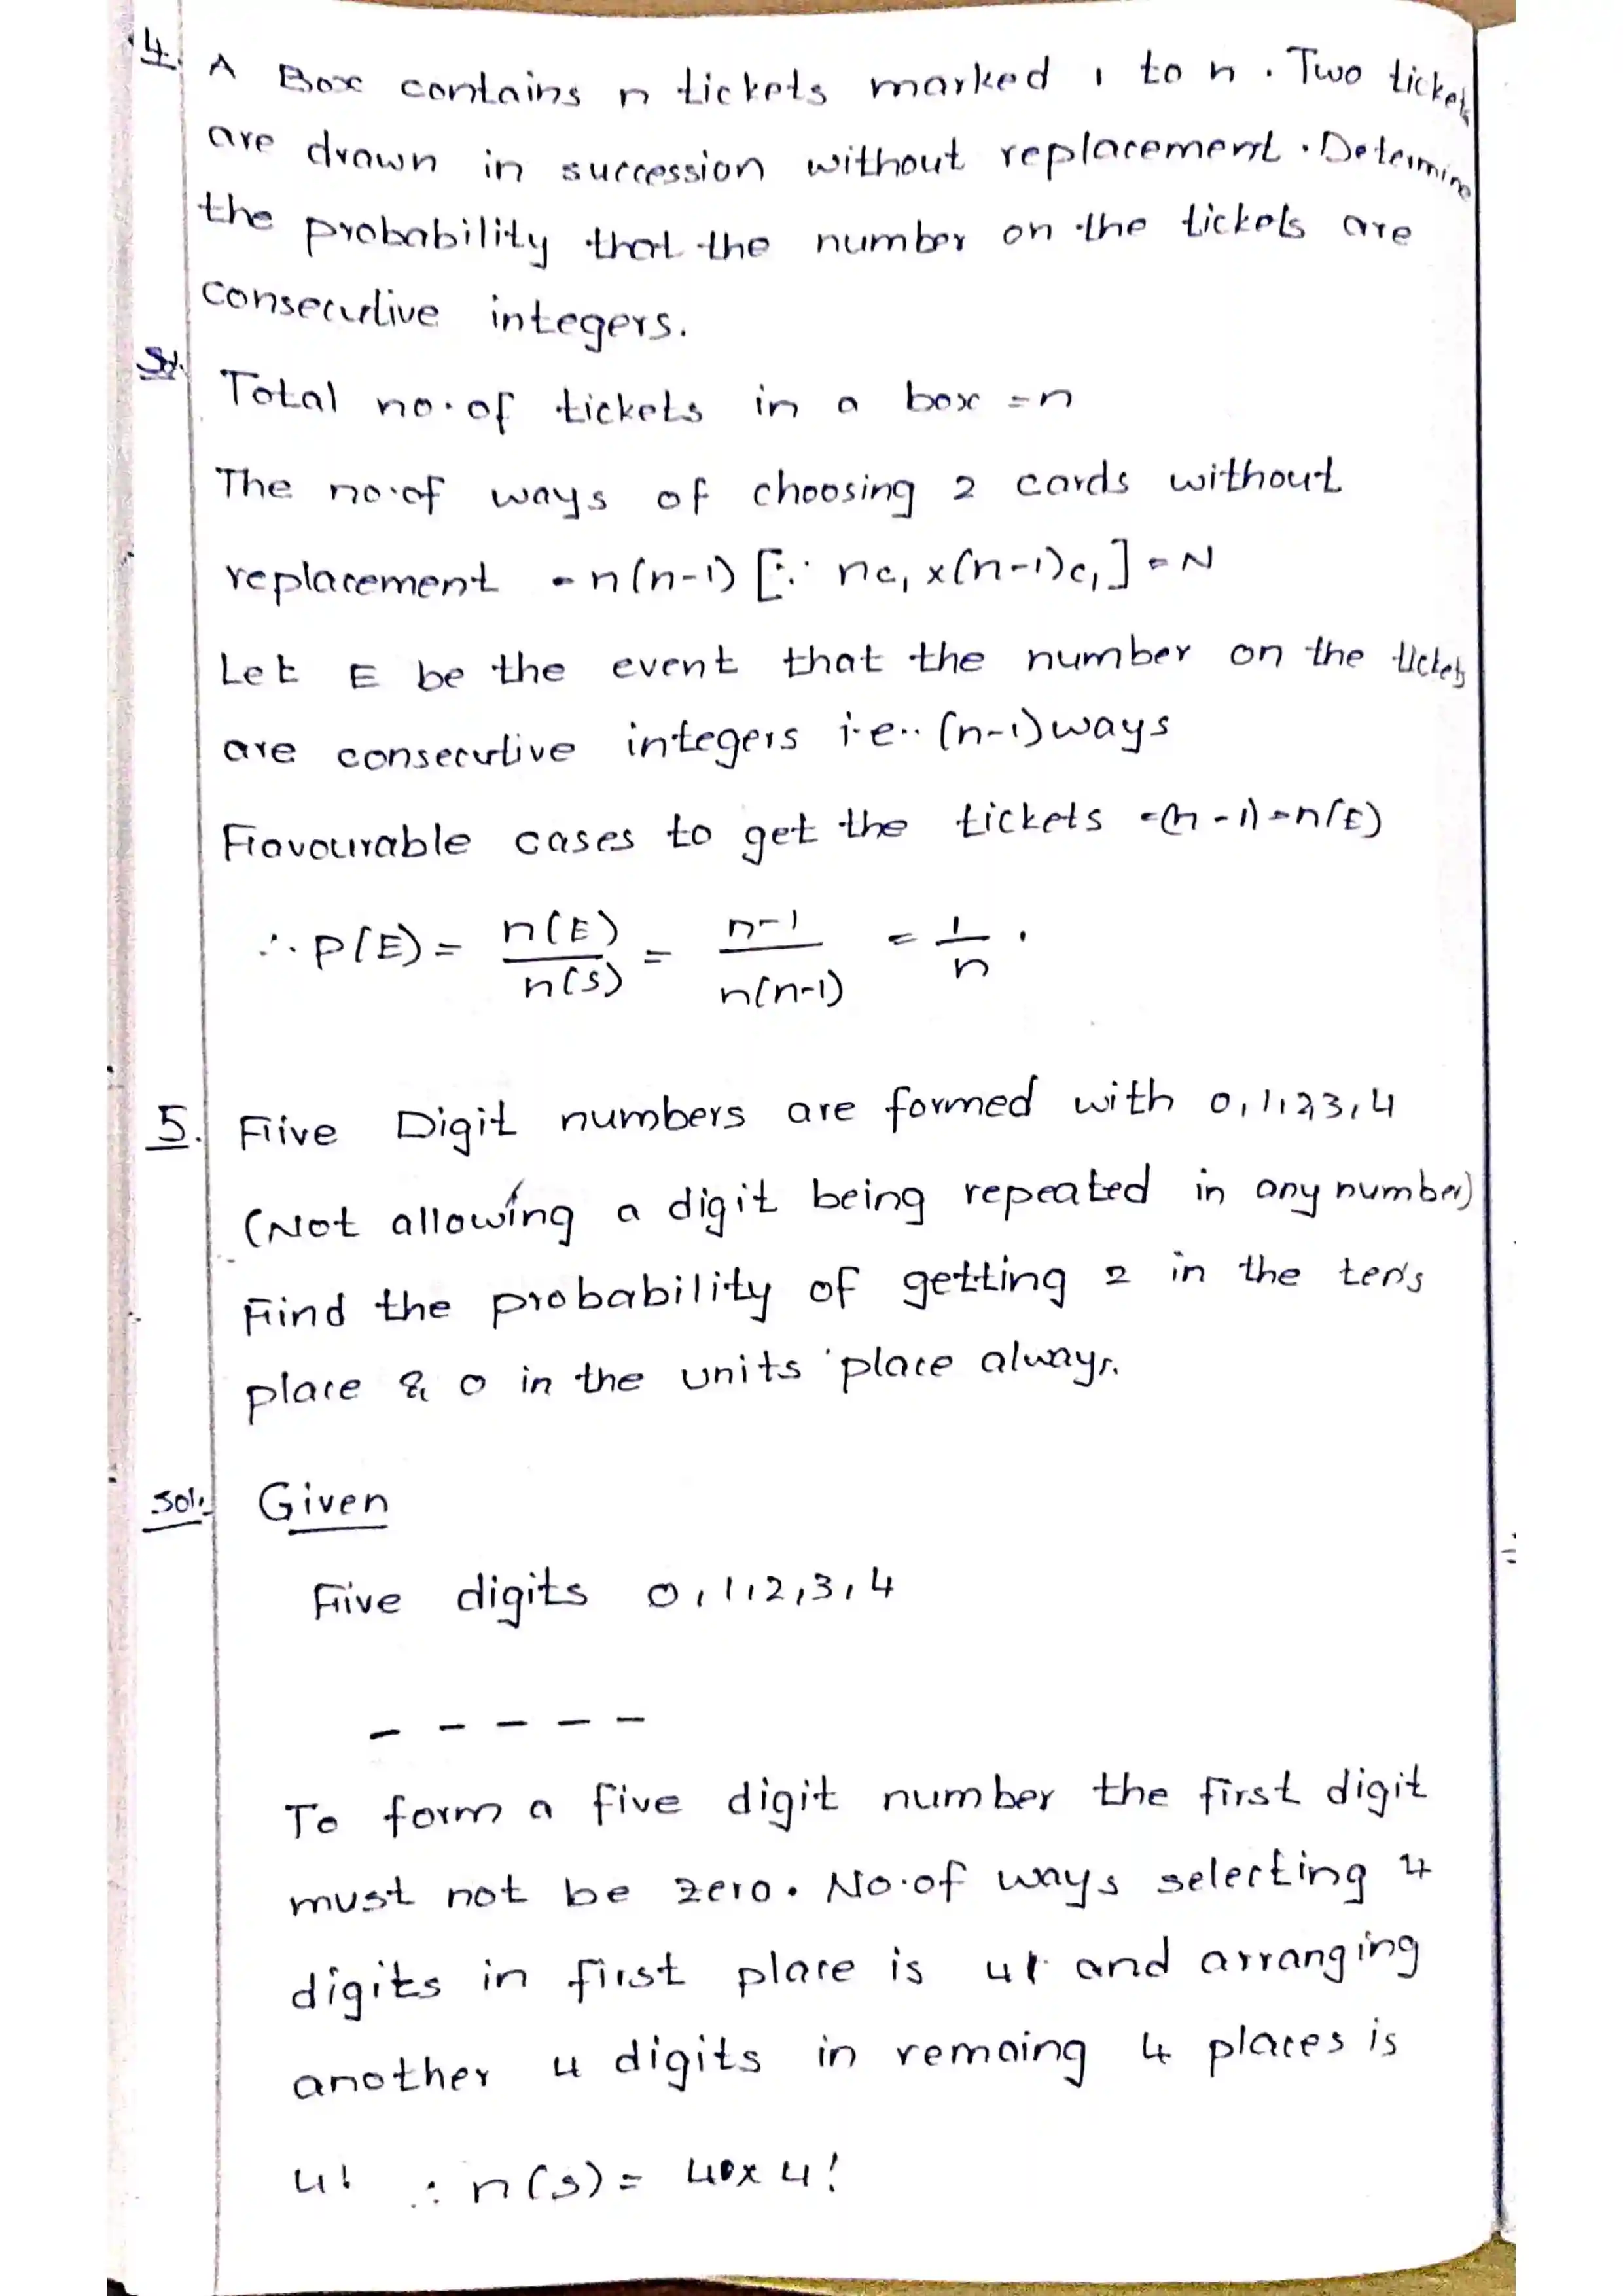 4. A Box contains n tickets marked 1 to n. Two tickets
are drawn in succession without replacement. Determine
the probability that the number on the tickets are
consecutive integers.
Sol. Total no. of tickets in a box = n
The no. of ways of choosing 2 cards without
replacement = n(n-1) [∵ nc₁ x (n-1)c₁] = N
Let E be the event that the number on the tickets
are consecutive integers i.e.. (n-1) ways
Favourable cases to get the tickets = (n-1) = n(E)
∴ P(E) = n(E)/n(S) = n-1/n(n-1) = 1/n.
5. Five Digit numbers are formed with 0,1,2,3,4
(Not allowing a digit being repeated in any number)
Find the probability of getting 2 in the ten's
place & 0 in the units place always.
Sol: Given
Five digits 0,1,2,3,4
_ _ _ _ _
To form a five digit number the first digit
must not be zero. No. of ways selecting 4
digits in first place is 4 and arranging
another 4 digits in remaing 4 places is
4! ∴ n(s) = 4 x 4!